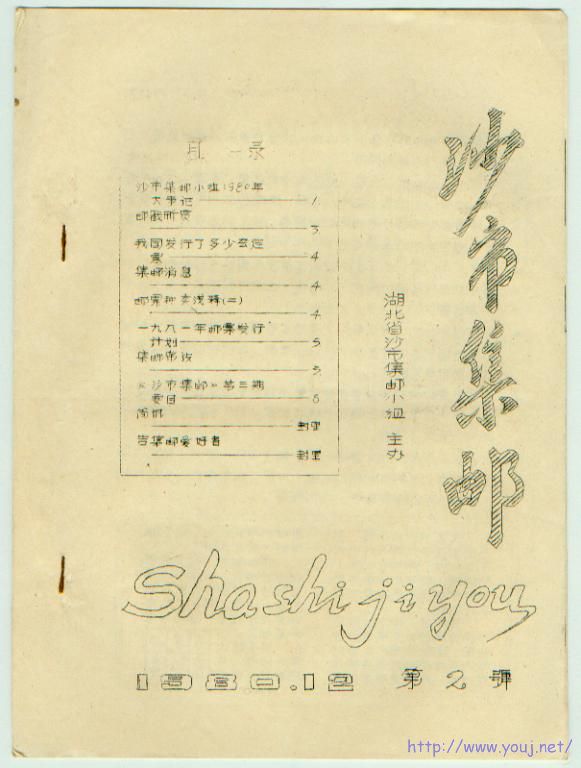 沙市集邮
湖北省沙市集邮小组 主办
目 录
沙市集邮小组1980年
大事记 1
邮戳
3
我国发行了多少套
票 4
集邮消息
4
邮票种类浅释(二)
4
一九八一年邮票发行
计划 5
集邮常识
5
《沙市集邮》第三期
要目 6
封里
告集邮爱好者
封里
Shashi jiyou
1980.12 第2號
http://www.youj.net/